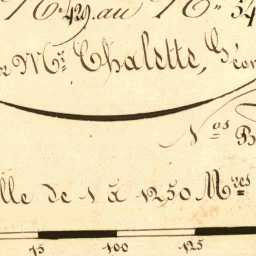 N.° 429. au N.° 54
Mr. Chalette, Géom
Nos B
lle de 1 à 1250 Mres
75 100 125